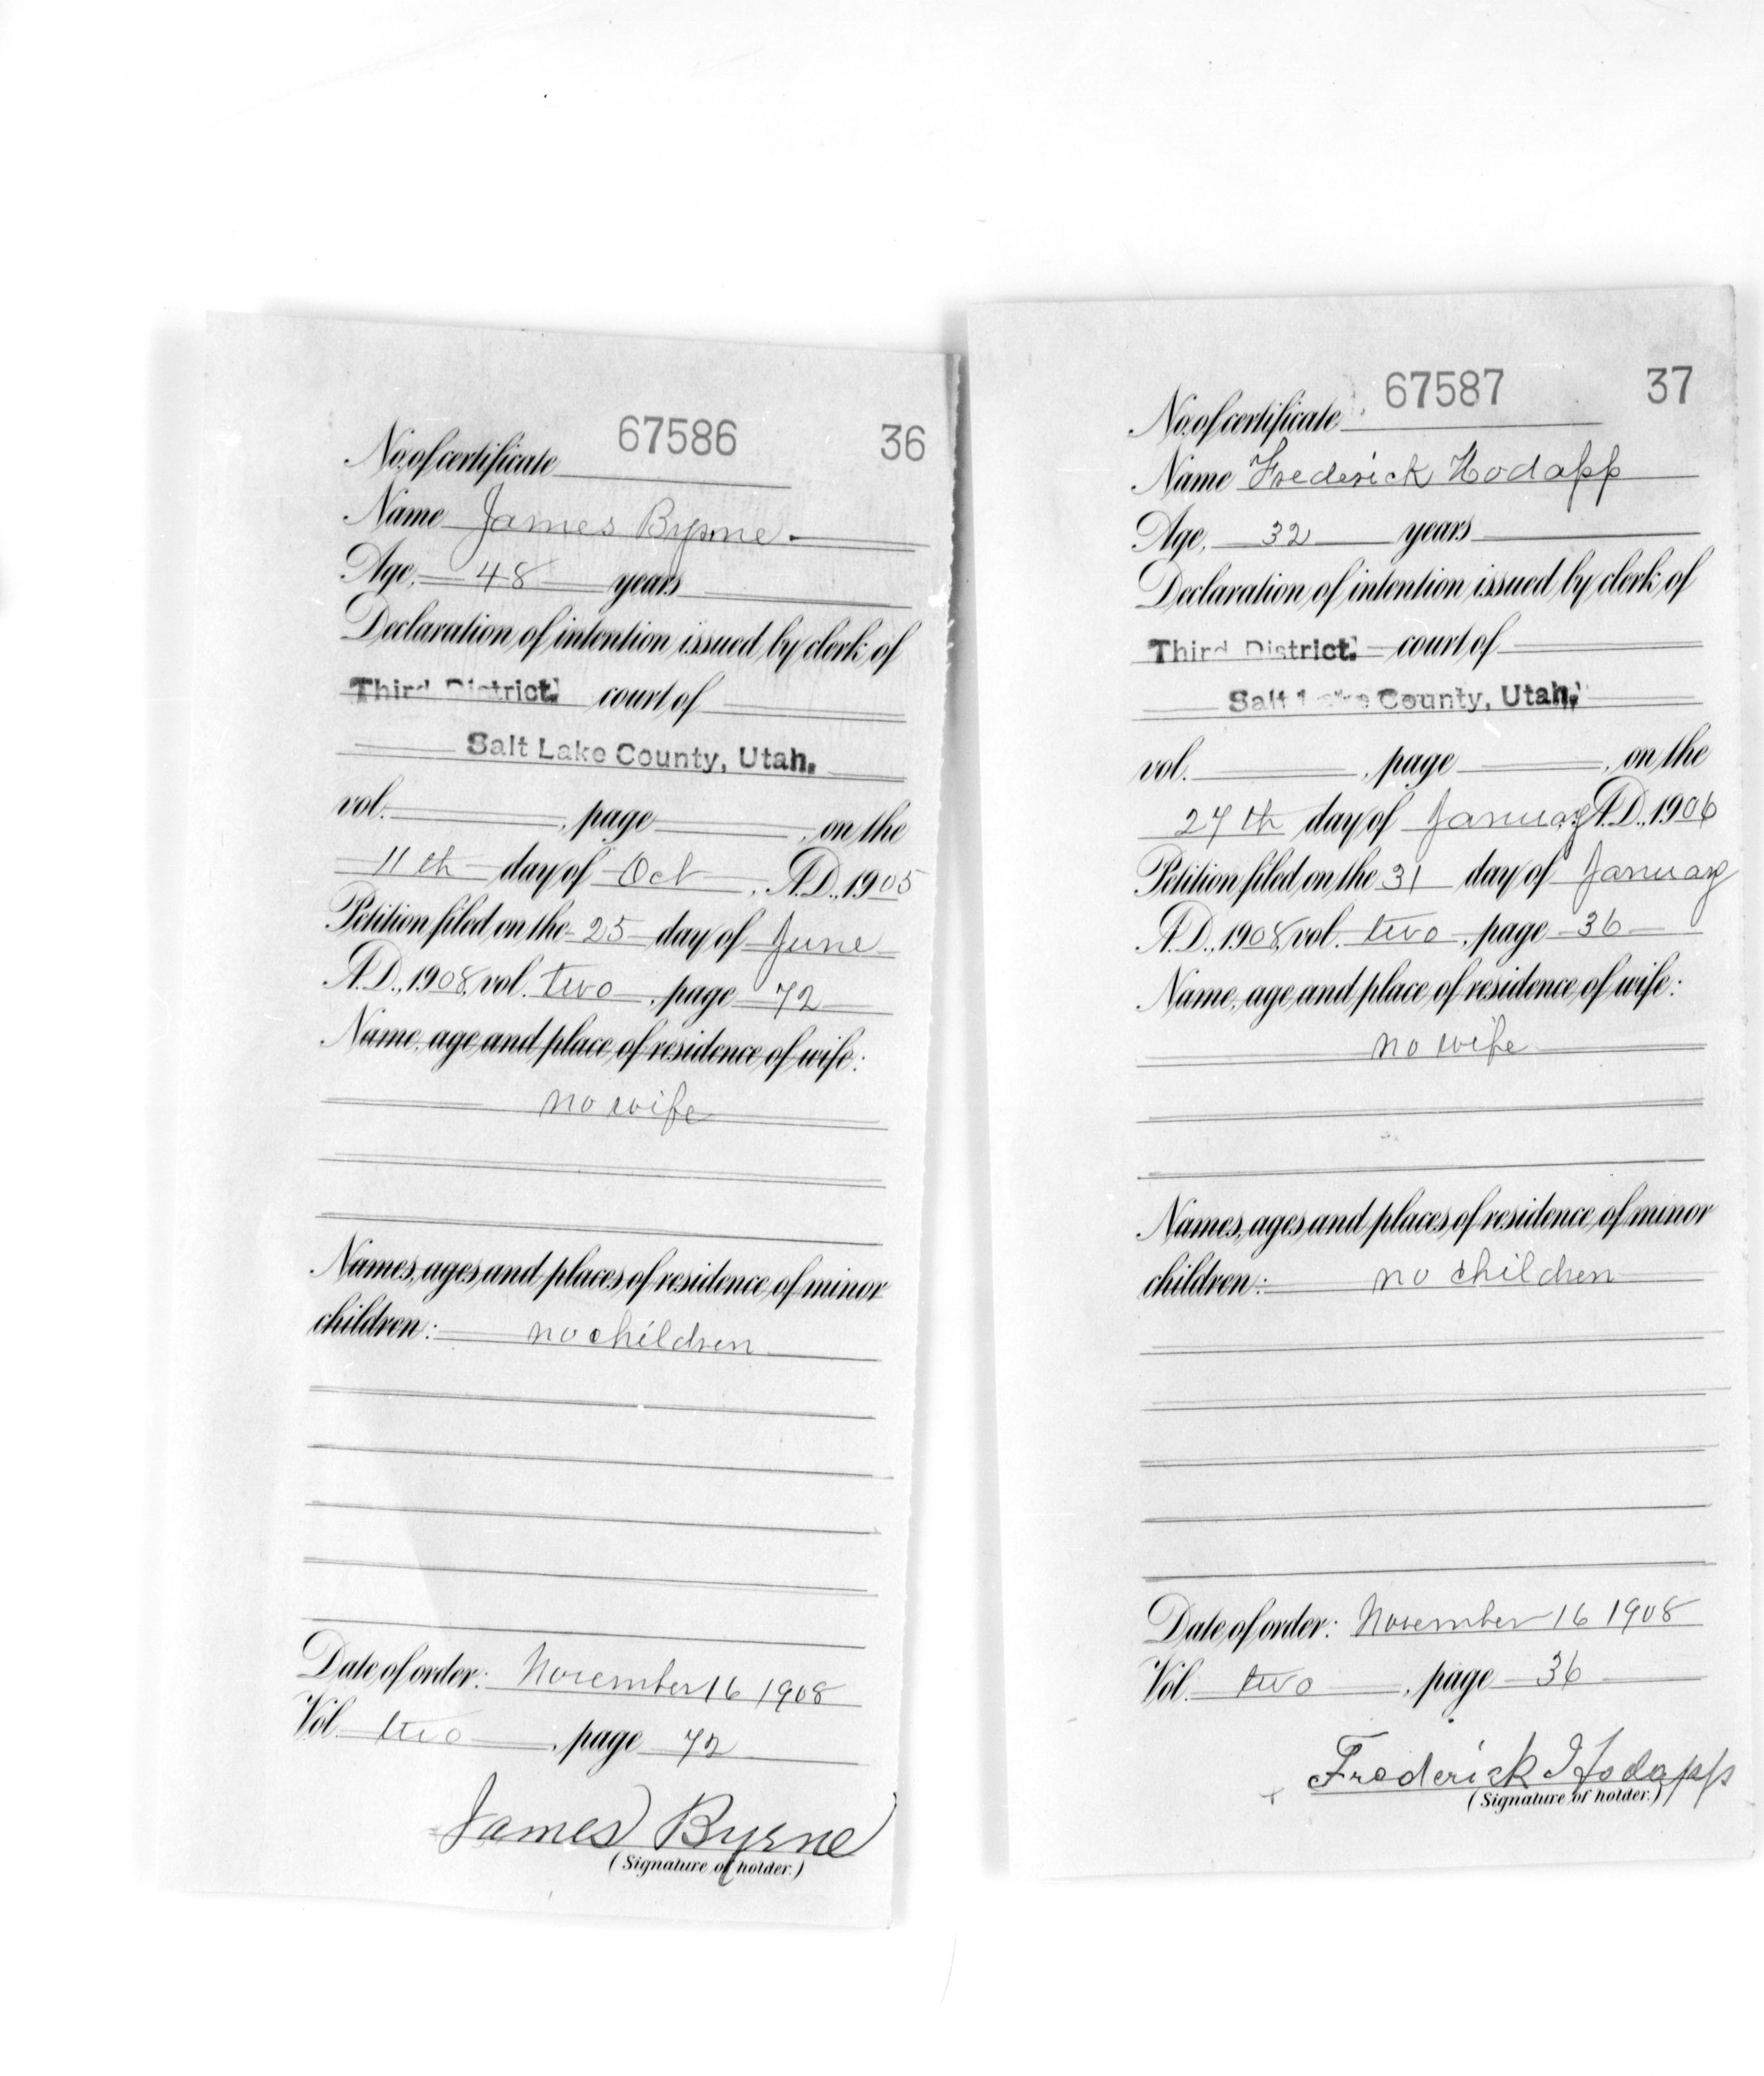 67586 36
No. of certificate
Name James Byrne
Age, 48 years
Declaration of intention issued by clerk of
Third District. court of
Salt Lake County, Utah.
vol. , page , on the
11th day of Oct , A.D., 1905
Petition filed on the 25 day of June
A.D., 1908, vol. two , page 72
Name, age and place of residence of wife:
no wife
Names, ages and places of residence of minor
children: no children
Date of order: November 16 1908
Vol. two , page 72
James Byrne
(Signature of holder.)
67587 37
No. of certificate
Name Frederick Hodapp
Age, 32 years
Declaration of intention issued by clerk of
Third District. court of
Salt Lake County, Utah.
vol. , page , on the
day of January A.D., 1906
Petition filed on the 31 day of January
A.D., 1908, vol. two , page 36
Name, age and place of residence of wife:
no wife
Names, ages and places of residence of minor
children: no children
Date of order: November 16 1908
Vol. two , page 36
Frederick Hodapp
(Signature of holder.)